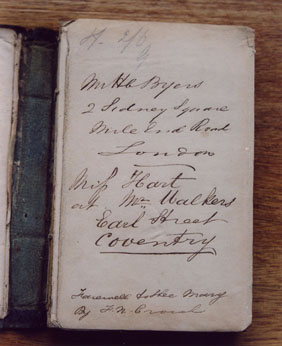 Mr H C Byers
2 Sidney Square
Mile End Road
London
Miss Hart
at Mrs Walkers
Earl Street
Coventry
Farewell to thee Mary
By F. N. Crouch